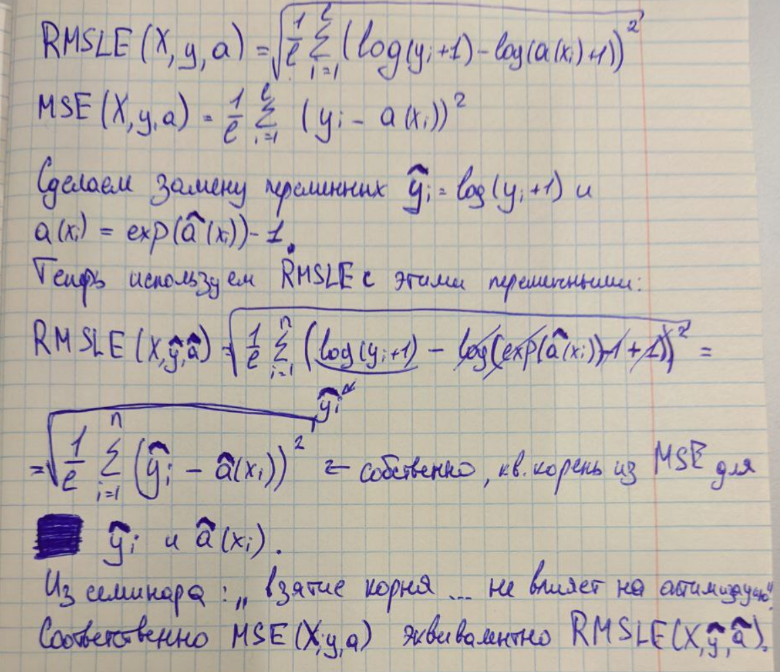 RMSLE(X,y,a) = √(1/ℓ ∑_{i=1}^{ℓ} (log(yᵢ+1) - log(a(xᵢ)+1))²)
MSE(X,y,a) = 1/ℓ ∑_{i=1}^{ℓ} (yᵢ - a(xᵢ))²
Сделаем замену переменных ŷᵢ = log(yᵢ+1) и
a(xᵢ) = exp(â(xᵢ)) - 1.
Теперь используем RMSLE с этими переменными:
RMSLE(X,ŷ,â) = √(1/ℓ ∑_{i=1}^{n} (log(yᵢ+1) - log(exp(â(xᵢ)) - 1 + 1))²) =
ŷᵢ
= √(1/ℓ ∑_{i=1}^{n} (ŷᵢ - â(xᵢ))²) = собственно, кв. корень из MSE для
ŷᵢ и â(xᵢ).
Из семинара: „взятие корня ... не влияет на оптимизацию"
Соответственно MSE(X,y,a) эквивалентно RMSLE(X,ŷ,â).